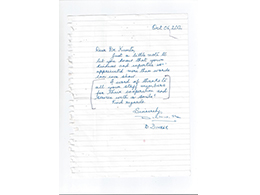 Dear Dr.
Just a little note to
let you know that your
kindness and expertise is
appreciated more than words
can ever show.
A word of thanks to
all your staff members
for their cooperation and
service with a smile!
Kind regards
Sincerely,